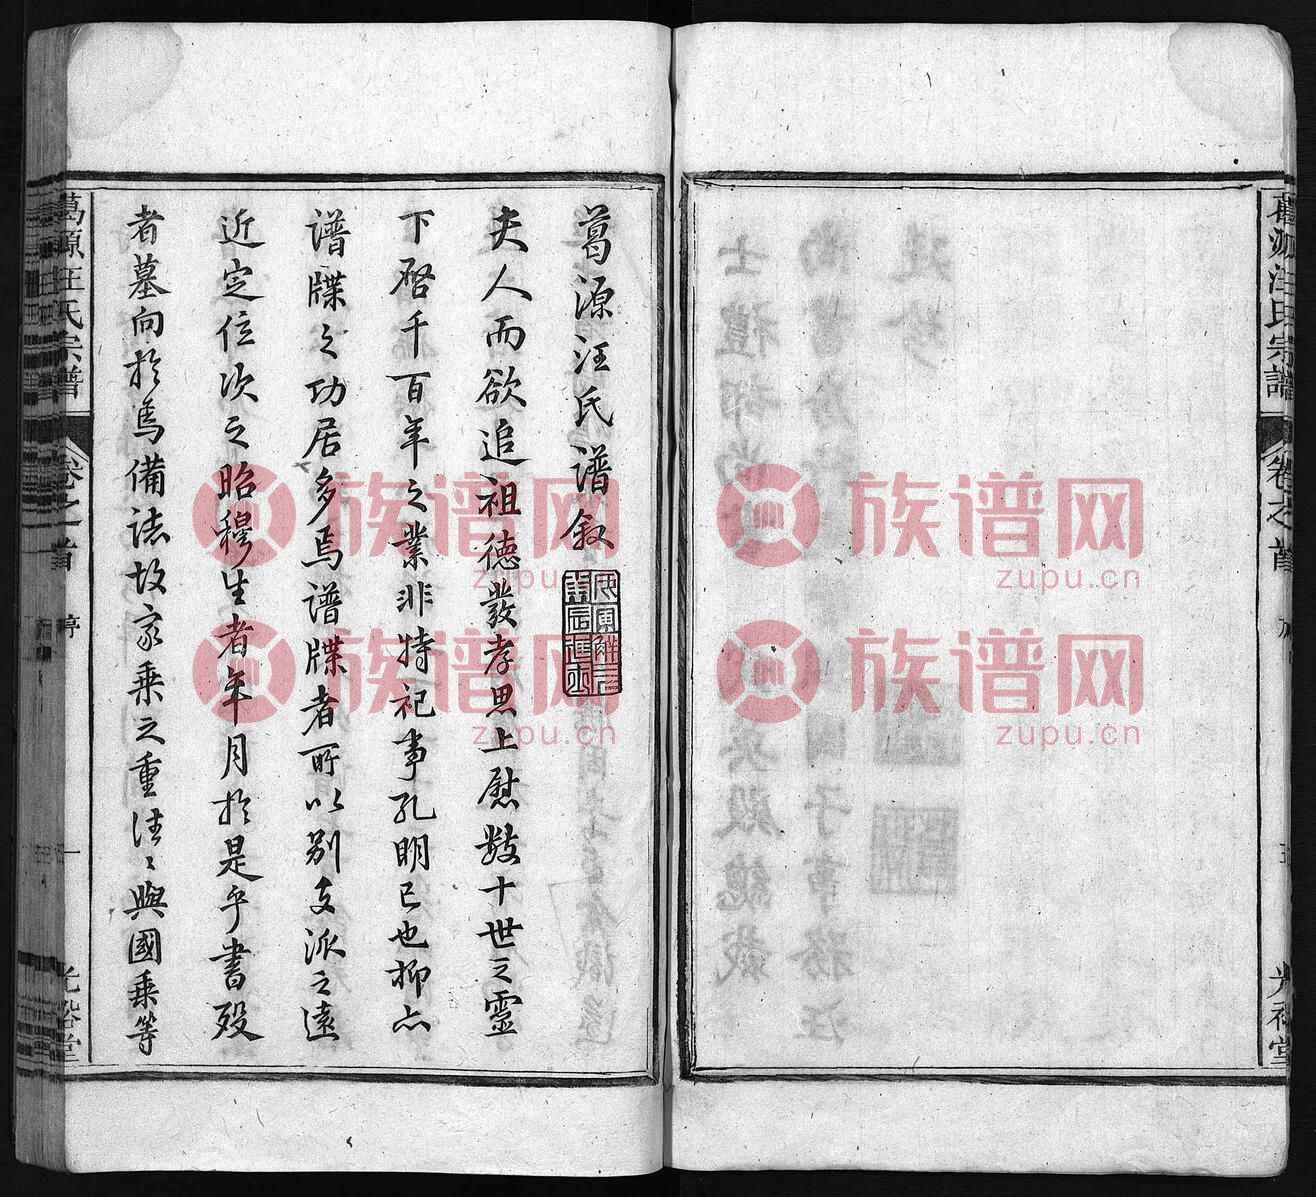 葛源汪氏宗譜
卷之首
光裕堂
葛源汪氏譜敘
夫人而欲追祖德發孝思上慰數十世之靈
下啓千百年之業非特祀事孔明已也抑亦
譜牒之功居多焉譜牒者所以別支派之遠
近定位次之昭穆生者年月於是乎書歿
者墓向於焉備誌故家乘之重洼〻與國乘等
葛源汪氏宗譜
卷之首
序
一
光裕堂
族谱网
zupu.cn
族谱网
zupu.cn
族谱网
zupu.cn
族谱网
zupu.cn